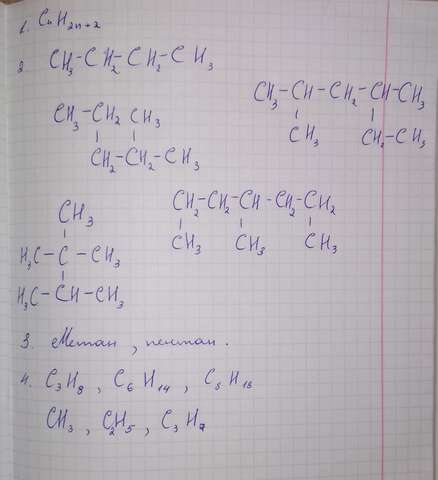 1. CnH2n+2
2 CH3-CH2-CH2-CH3
CH3-CH2 CH3
CH2-CH2-CH3
CH3-CH-CH2-CH-CH3
CH3 CH2-CH3
CH3
H3C-C-CH3
H3C-CH-CH3
CH2-CH2-CH-CH2-CH2
CH3 CH3 CH3
3. Метан, пентан.
4. C3H8, C6H14,
CH3, C2H5, C3H7